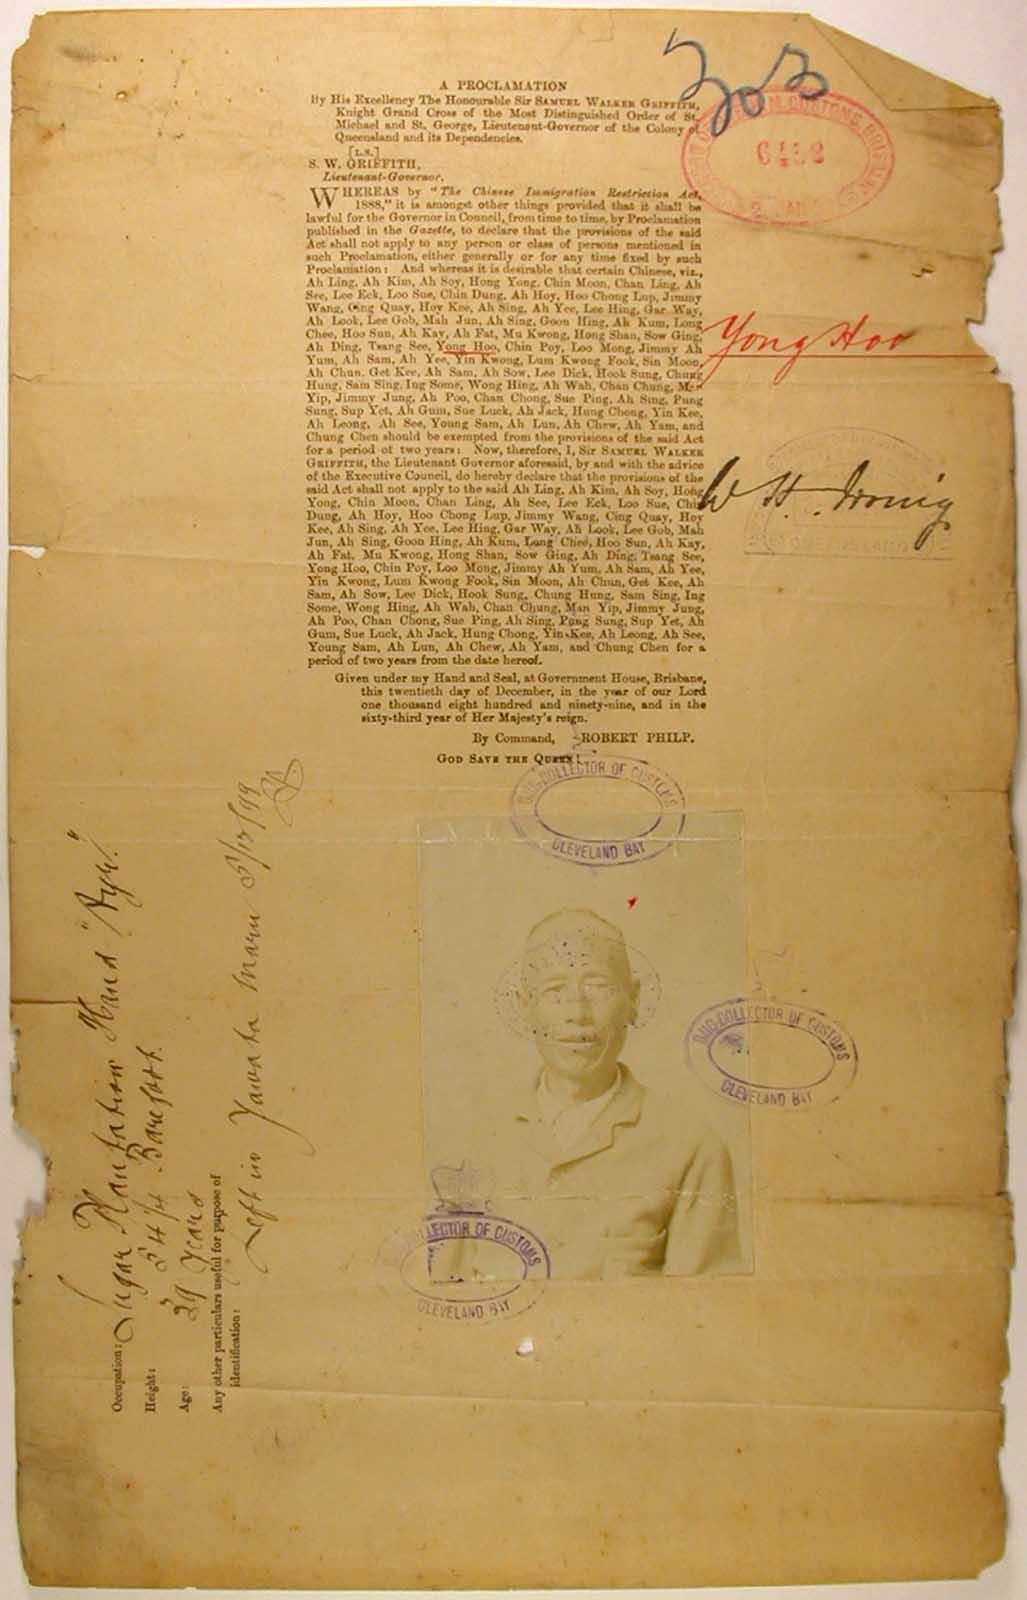 303
A PROCLAMATION
By His Excellency The Honourable Sir SAMUEL WALKER GRIFFITH,
Knight Grand Cross of the Most Distinguished Order of St.
Michael and St. George, Lieutenant-Governor of the Colony of
Queensland and its Dependencies.
[L.S.]
S. W. GRIFFITH,
Lieutenant-Governor.
WHEREAS by "The Chinese Immigration Restriction Act,
1888," it is amongst other things provided that it shall be
lawful for the Governor in Council, from time to time, by Proclamation
published in the Gazette, to declare that the provisions of the said
Act shall not apply to any person or class of persons mentioned in
such Proclamation, either generally or for any time fixed by such
Proclamation: And whereas it is desirable that certain Chinese, viz.,
Ah Ling, Ah Kim, Ah Soy, Hong Yong, Chin Moon, Chan Ling, Ah
See, Lee Eck, Loo Sue, Chin Dung, Ah Hoy, Hoo Chong Lup, Jimmy
Wang, Cing Quay, Hoy Kee, Ah Sing, Ah Yee, Lee Hing, Gar Way,
Ah Look, Lee Gob, Mah Jun, Ah Sing, Goon Hing, Ah Kum, Long
Chee, Hoo Sun, Ah Kay, Ah Fat, Mu Kwong, Hong Shan, Sow Ging,
Ah Ding, Tsang See, Yong Hoo, Chin Poy, Loo Mong, Jimmy Ah
Yum, Ah Sam, Ah Yee, Yin Kwong, Lum Kwong Fook, Sin Moon,
Ah Chun, Get Kee, Ah Sam, Ah Sow, Lee Dick, Hook Sung, Chung
Hung, Sam Sing, Ing Some, Wong Hing, Ah Wah, Chan Chung, Man
Yip, Jimmy Jung, Ah Poo, Chan Chong, Sue Ping, Ah Sing, Pung
Sung, Sup Yet, Ah Gum, Sue Luck, Ah Jack, Hung Chong, Yin Kee,
Ah Leong, Ah See, Young Sam, Ah Lun, Ah Chew, Ah Yam, and
Chung Chen should be exempted from the provisions of the said Act
for a period of two years: Now, therefore, I, Sir SAMUEL WALKER
GRIFFITH, the Lieutenant Governor aforesaid, by and with the advice
of the Executive Council, do hereby declare that the provisions of the
said Act shall not apply to the said Ah Ling, Ah Kim, Ah Soy, Hong
Yong, Chin Moon, Chan Ling, Ah See, Lee Eck, Loo Sue, Chin
Dung, Ah Hoy, Hoo Chong Lup, Jimmy Wang, Cing Quay, Hoy
Kee, Ah Sing, Ah Yee, Lee Hing, Gar Way, Ah Look, Lee Gob, Mah
Jun, Ah Sing, Goon Hing, Ah Kum, Long Chee, Hoo Sun, Ah Kay,
Ah Fat, Mu Kwong, Hong Shan, Sow Ging, Ah Ding, Tsang See,
Yong Hoo, Chin Poy, Loo Mong, Jimmy Ah Yum, Ah Sam, Ah Yee,
Yin Kwong, Lum Kwong Fook, Sin Moon, Ah Chun, Get Kee, Ah
Sam, Ah Sow, Lee Dick, Hook Sung, Chung Hung, Sam Sing, Ing
Some, Wong Hing, Ah Wah, Chan Chung, Man Yip, Jimmy Jung,
Ah Poo, Chan Chong, Sue Ping, Ah Sing, Pung Sung, Sup Yet, Ah
Gum, Sue Luck, Ah Jack, Hung Chong, Yin Kee, Ah Leong, Ah See,
Young Sam, Ah Lun, Ah Chew, Ah Yam, and Chung Chen for a
period of two years from the date hereof.
Given under my Hand and Seal, at Government House, Brisbane,
this twentieth day of December, in the year of our Lord
one thousand eight hundred and ninety-nine, and in the
sixty-third year of Her Majesty's reign.
By Command, ROBERT PHILP.
GOD SAVE THE QUEEN!
CUSTOMS, BRISBANE
Yong Hoo
W H Irving
SUB-COLLECTOR OF CUSTOMS
CLEVELAND BAY
SUB-COLLECTOR OF CUSTOMS
CLEVELAND BAY
COLLECTOR OF CUSTOMS
CLEVELAND BAY
Occupation: Sugar Plantation Hand
Height: 5 4 1/4 Barefoot
Age: 39 Years
Any other particulars useful for purpose of
identification:
Left in Yawata Maru 5/12/99